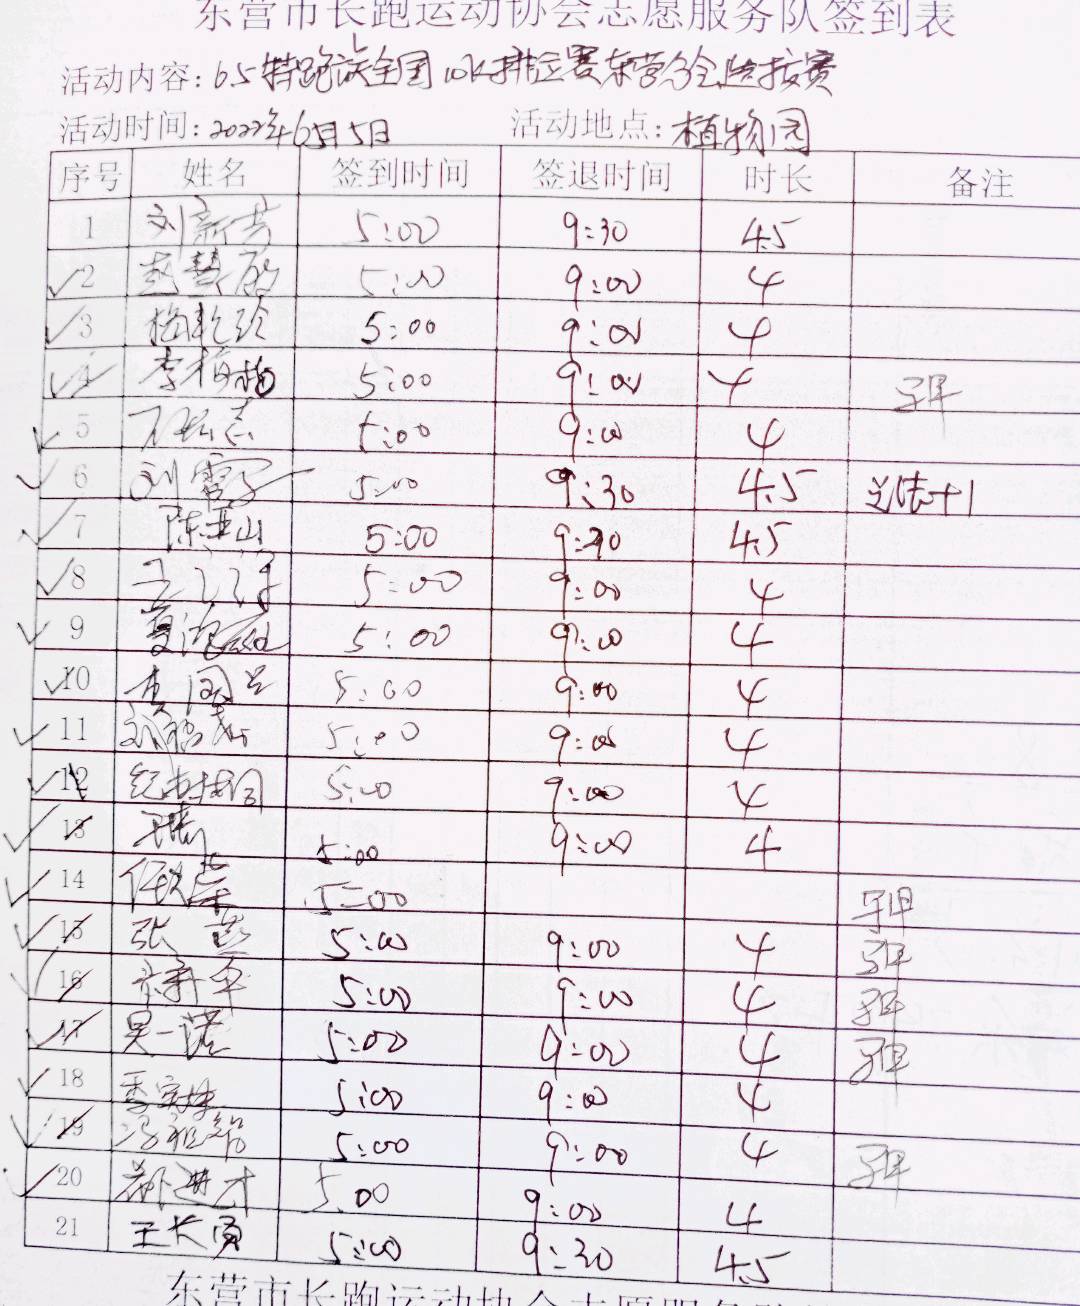 东营市长跑运动协会志愿服务队签到表
活动内容：6.5特跑族全国10K排位赛东营分会选拔赛
活动时间：2022年6月5日 活动地点：植物园
序号 姓名 签到时间 签退时间 时长 备注
1 刘新芳 5:00 9:30 4.5
2 赵慧 5:00 9:00 4
3 5:00 9:00 4
4 李梅梅 5:00 9:00 4
5 5:00 9:00 4
6 刘雪 5:00 9:30 4.5 +1
7 陈亚山 5:00 9:30 4.5
8 5:00 9:00 4
9 5:00 9:00 4
10 李 5:00 9:00 4
11 5:00 9:00 4
12 纪 5:00 9:00 4
13 5:00 9:00 4
14 任 5:00
15 张 5:00 9:00 4
16 5:00 9:00 4
17 吴一诺 5:00 9:00 4
18 季 5:00 9:00 4
19 冯 5:00 9:00 4
20 进才 5:00 9:00 4
21 王长 5:00 9:30 4.5
东营市长跑运动协会志愿服务队